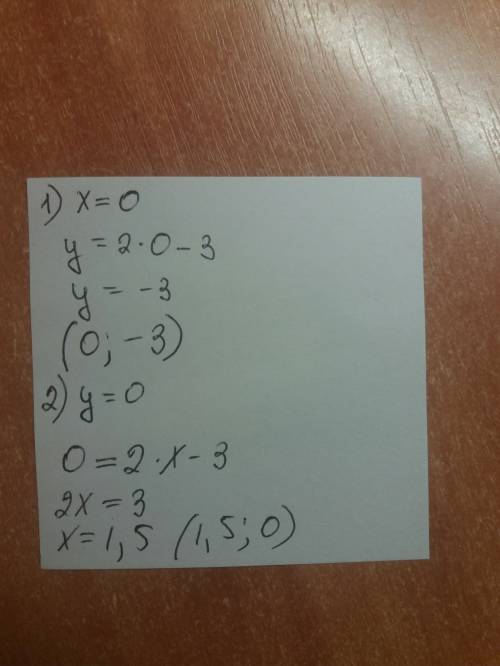 1) x = 0
y = 2 · 0 - 3
y = -3
(0; -3)
2) y = 0
0 = 2 · x - 3
2x = 3
x = 1,5 (1,5; 0)